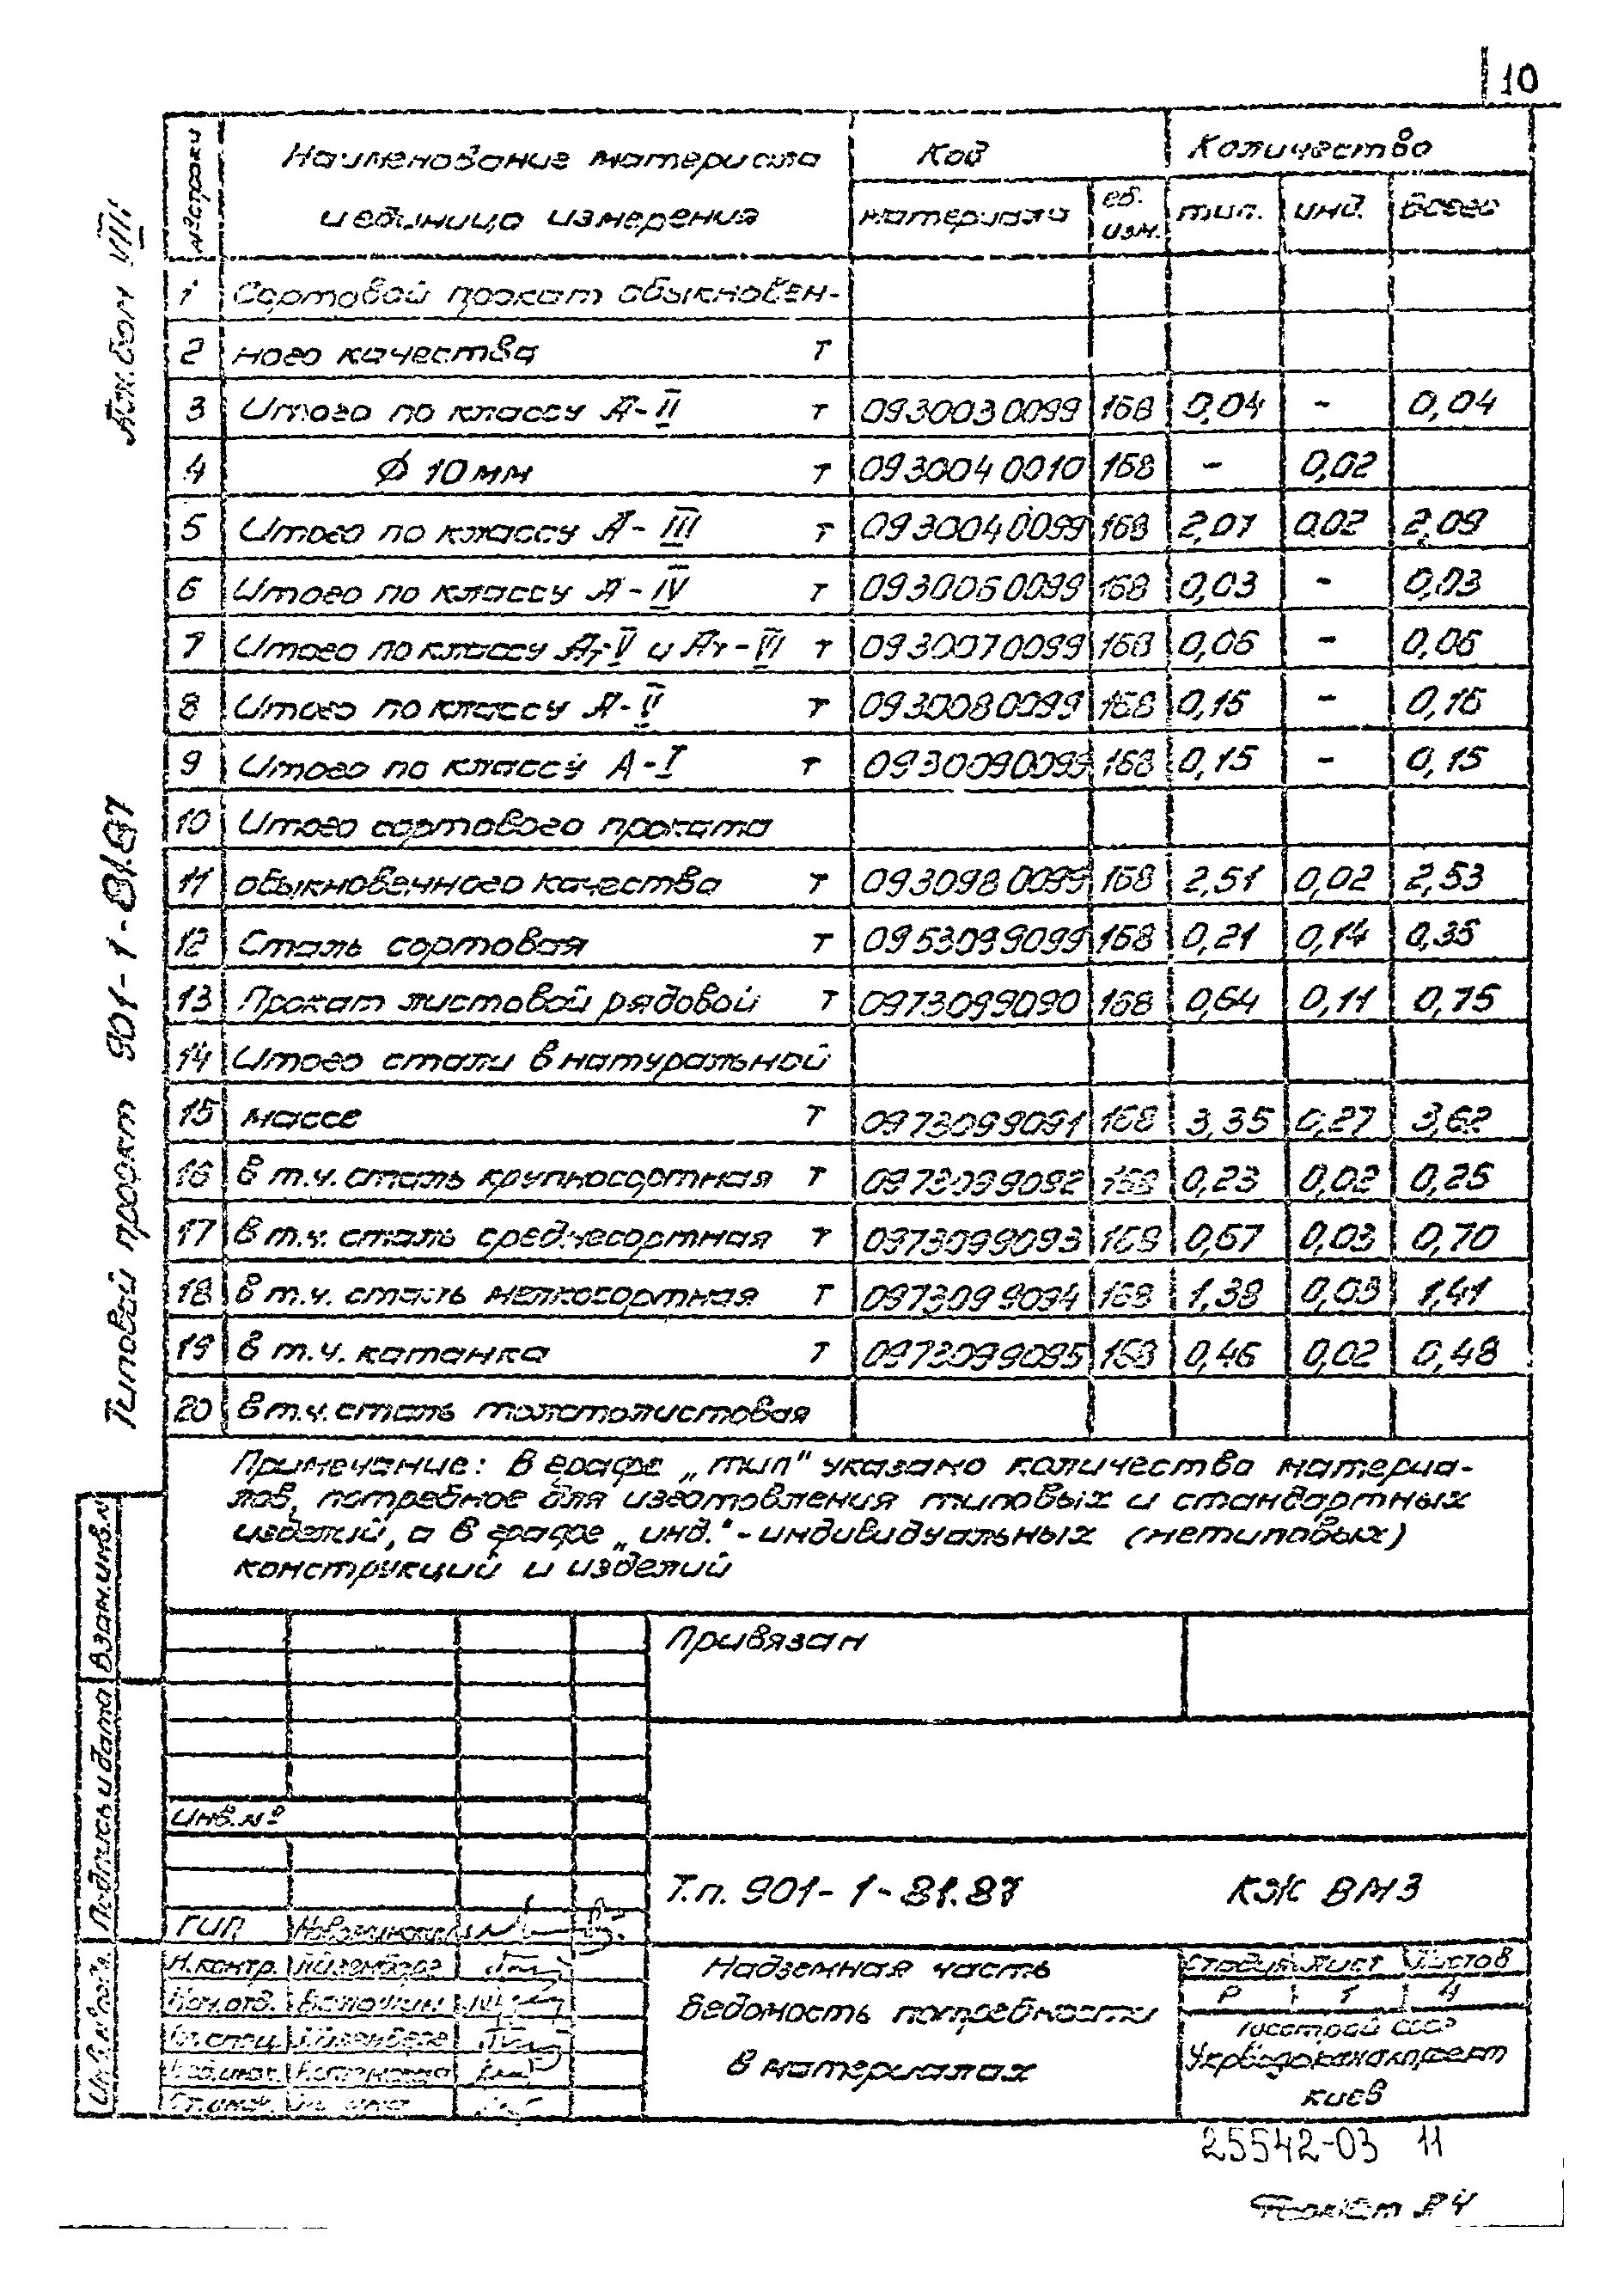 10
№ строки | Наименование материала и единица измерения | Код материала | Код ед. изм. | Количество тип. | инд. | всего
1 | Сортовой прокат обыкновен-
2 | ного качества т
3 | Итого по классу А-II т | 0930030099 | 168 | 0,04 | - | 0,04
4 | Ф 10 мм т | 0930040010 | 168 | - | 0,02
5 | Итого по классу А-III т | 0930040099 | 168 | 2,07 | 0,02 | 2,09
6 | Итого по классу А-IV т | 0930060099 | 168 | 0,03 | - | 0,03
7 | Итого по классу Ат-V и Ат-III т | 0930070099 | 168 | 0,06 | - | 0,06
8 | Итого по классу А-V т | 0930080099 | 168 | 0,15 | - | 0,15
9 | Итого по классу А-I т | 0930090099 | 168 | 0,15 | - | 0,15
10 | Итого сортового проката
11 | обыкновенного качества т | 0930980099 | 168 | 2,51 | 0,02 | 2,53
12 | Сталь сортовая т | 0953099099 | 168 | 0,21 | 0,14 | 0,35
13 | Прокат листовой рядовой т | 0973099090 | 168 | 0,64 | 0,11 | 0,75
14 | Итого стали в натуральной
15 | массе т | 0973099091 | 168 | 3,35 | 0,27 | 3,62
16 | в т.ч. сталь крупносортная т | 0973099092 | 168 | 0,23 | 0,02 | 0,25
17 | в т.ч. сталь среднесортная т | 0973099093 | 168 | 0,67 | 0,03 | 0,70
18 | в т.ч. сталь мелкосортная т | 0973099094 | 168 | 1,38 | 0,03 | 1,41
19 | в т.ч. катанка т | 0973099095 | 168 | 0,46 | 0,02 | 0,48
20 | в т.ч. сталь толстолистовая
Примечание: В графе „тип" указано количество материа-
лов, потребное для изготовления типовых и стандартных
изделий, а в графе „инд."- индивидуальных (нетиповых)
конструкций и изделий
Альбом VIII
Типовой проект 901-1-81.87
Взам.инв.№
Подпись и дата
Инв.№ подл.
Привязан
Инв.№
Т.п. 901-1-81.87 КЖ ВМ3
ГИП
Н.контр. Айзенберг
Нач.отд.
Гл.спец. Айзенберг
Надземная часть
Ведомость потребности
в материалах
Стадия | Лист | Листов
Р | 1 | 4
Госстрой СССР
Укрводоканалпроект
Киев
25542-03 11
Формат А4